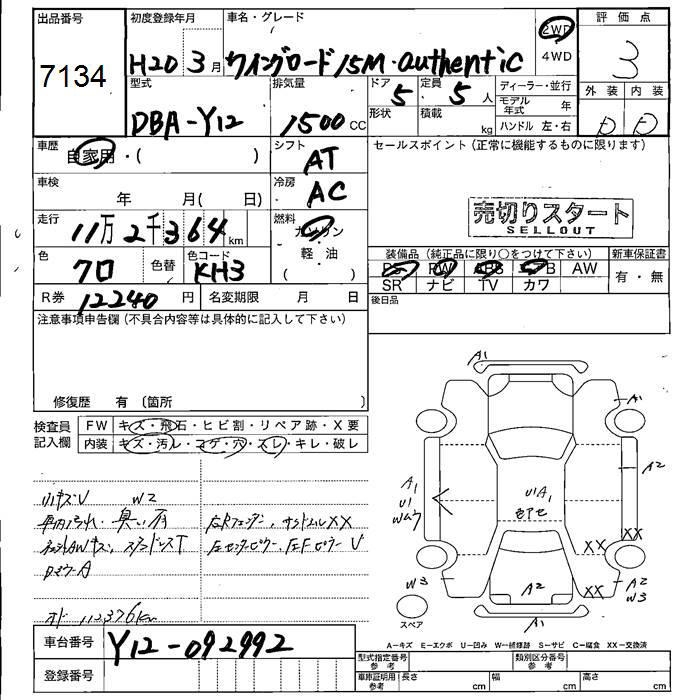 出品番号 初度登録年月 車名・グレード 2WD 評価点
7134 H20 3月 ウイングロード 15M・authentic 4WD 3
型式 排気量 ドア 5 定員 5人 ディーラー・並行 外装 内装
DBA-Y12 1500cc 形状 積載 kg モデル年式 年 D D
ハンドル 左・右
車歴 自家用・( ) シフト AT セールスポイント(正常に機能するものに限ります)
車検 年 月( 日) 冷房 AC
売切りスタート
SELLOUT
走行 11万2千364km 燃料 ガソリン
軽・油
( )
色 クロ 色替 色コード KH3
装備品(純正品に限り○をつけて下さい) 新車保証書
PS PW ABS エアB AW 有・無
SR ナビ TV カワ
R券 12240円 名変期限 月 日 後日品
注意事項申告欄(不具合内容等は具体的に記入して下さい)
修復歴 有(箇所 )
検査員記入欄 FW キズ・飛石・ヒビ割・リペア跡・X要
内装 キズ・汚レ・コゲ・穴・スレ・キレ・破レ
リハキズU W2
車内汚れ・臭い有
左Rフェンダー、サイドシルXX
左センターピラー、左Fピラー U
スタッドレスT
DミラーA
メーター 112376km
A1
A1
A2
A1
U1
Wムラ
U1 A1
色アセ
XX
XX
XX
A2
W3
A2
W3
A1
スペア
A−キズ E−エクボ U−凹み W−補修跡 S−サビ C−腐食 XX−交換済
車台番号 Y12-092992
型式指定番号 参考 類別区分番号 参考
登録番号
車庫証明用 参考 長さ cm 幅 cm 高さ cm